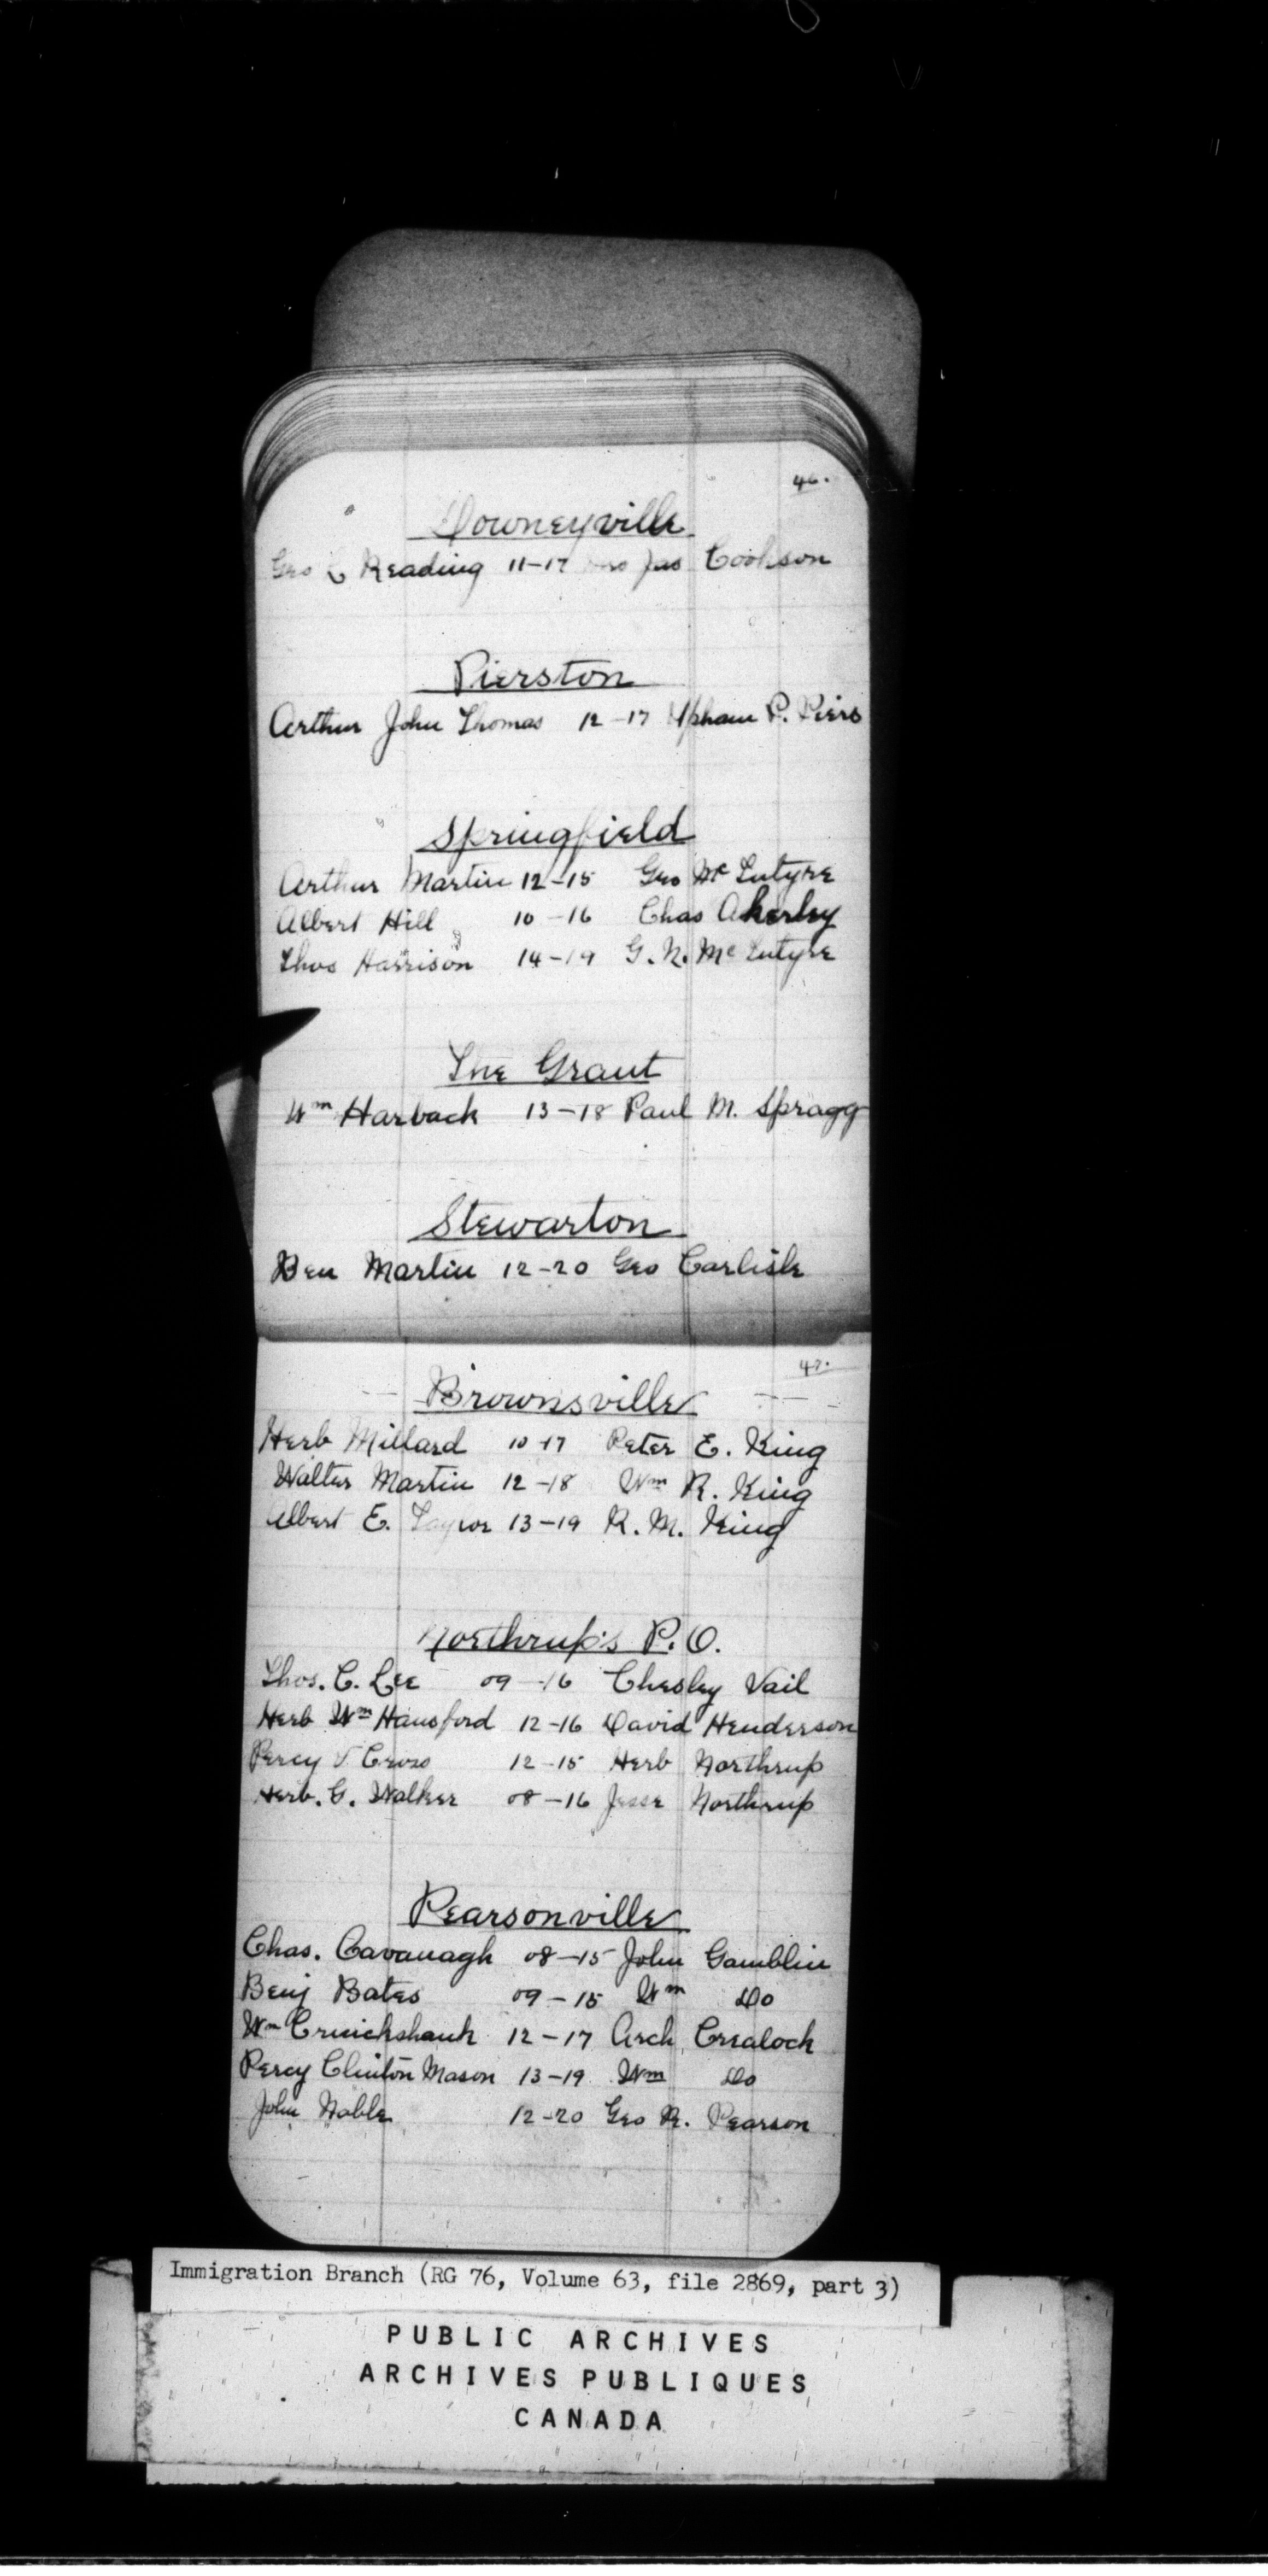 46.
Downeyville
Geo C Reading 11-17 Mrs Jas Cookson
Pierston
Arthur John Thomas 12-17 Upham P. Piers
Springfield
Arthur Martin 12-15 Geo McIntyre
Albert Hill 10-16 Chas Akerley
Thos Harrison 14-19 G. N. McIntyre
The Grant
Wm Harback 13-18 Paul M. Spragg
Stewarton
Ben Martin 12-20 Geo Carlisle
47.
Brownsville
Herb Millard 10-17 Peter E. King
Walter Martin 12-18 Wm R. King
Albert E. Taylor 13-19 R. M. King
Northrup's P.O.
Thos. C. Lee 09-16 Chesley Vail
Herb Wm Hansford 12-16 David Henderson
Percy Cross 12-15 Herb Northrup
Herb. G. Walker 08-16 Jesse Northrup
Pearsonville
Chas. Cavanagh 08-15 John Gamblin
Benj Bates 09-15 Wm Do
Wm Cruickshank 12-17 Arch Crealock
Percy Clinton Mason 13-19 Wm Do
John Noble 12-20 Geo R. Pearson
Immigration Branch (RG 76, Volume 63, file 2869, part 3)
PUBLIC ARCHIVES
ARCHIVES PUBLIQUES
CANADA